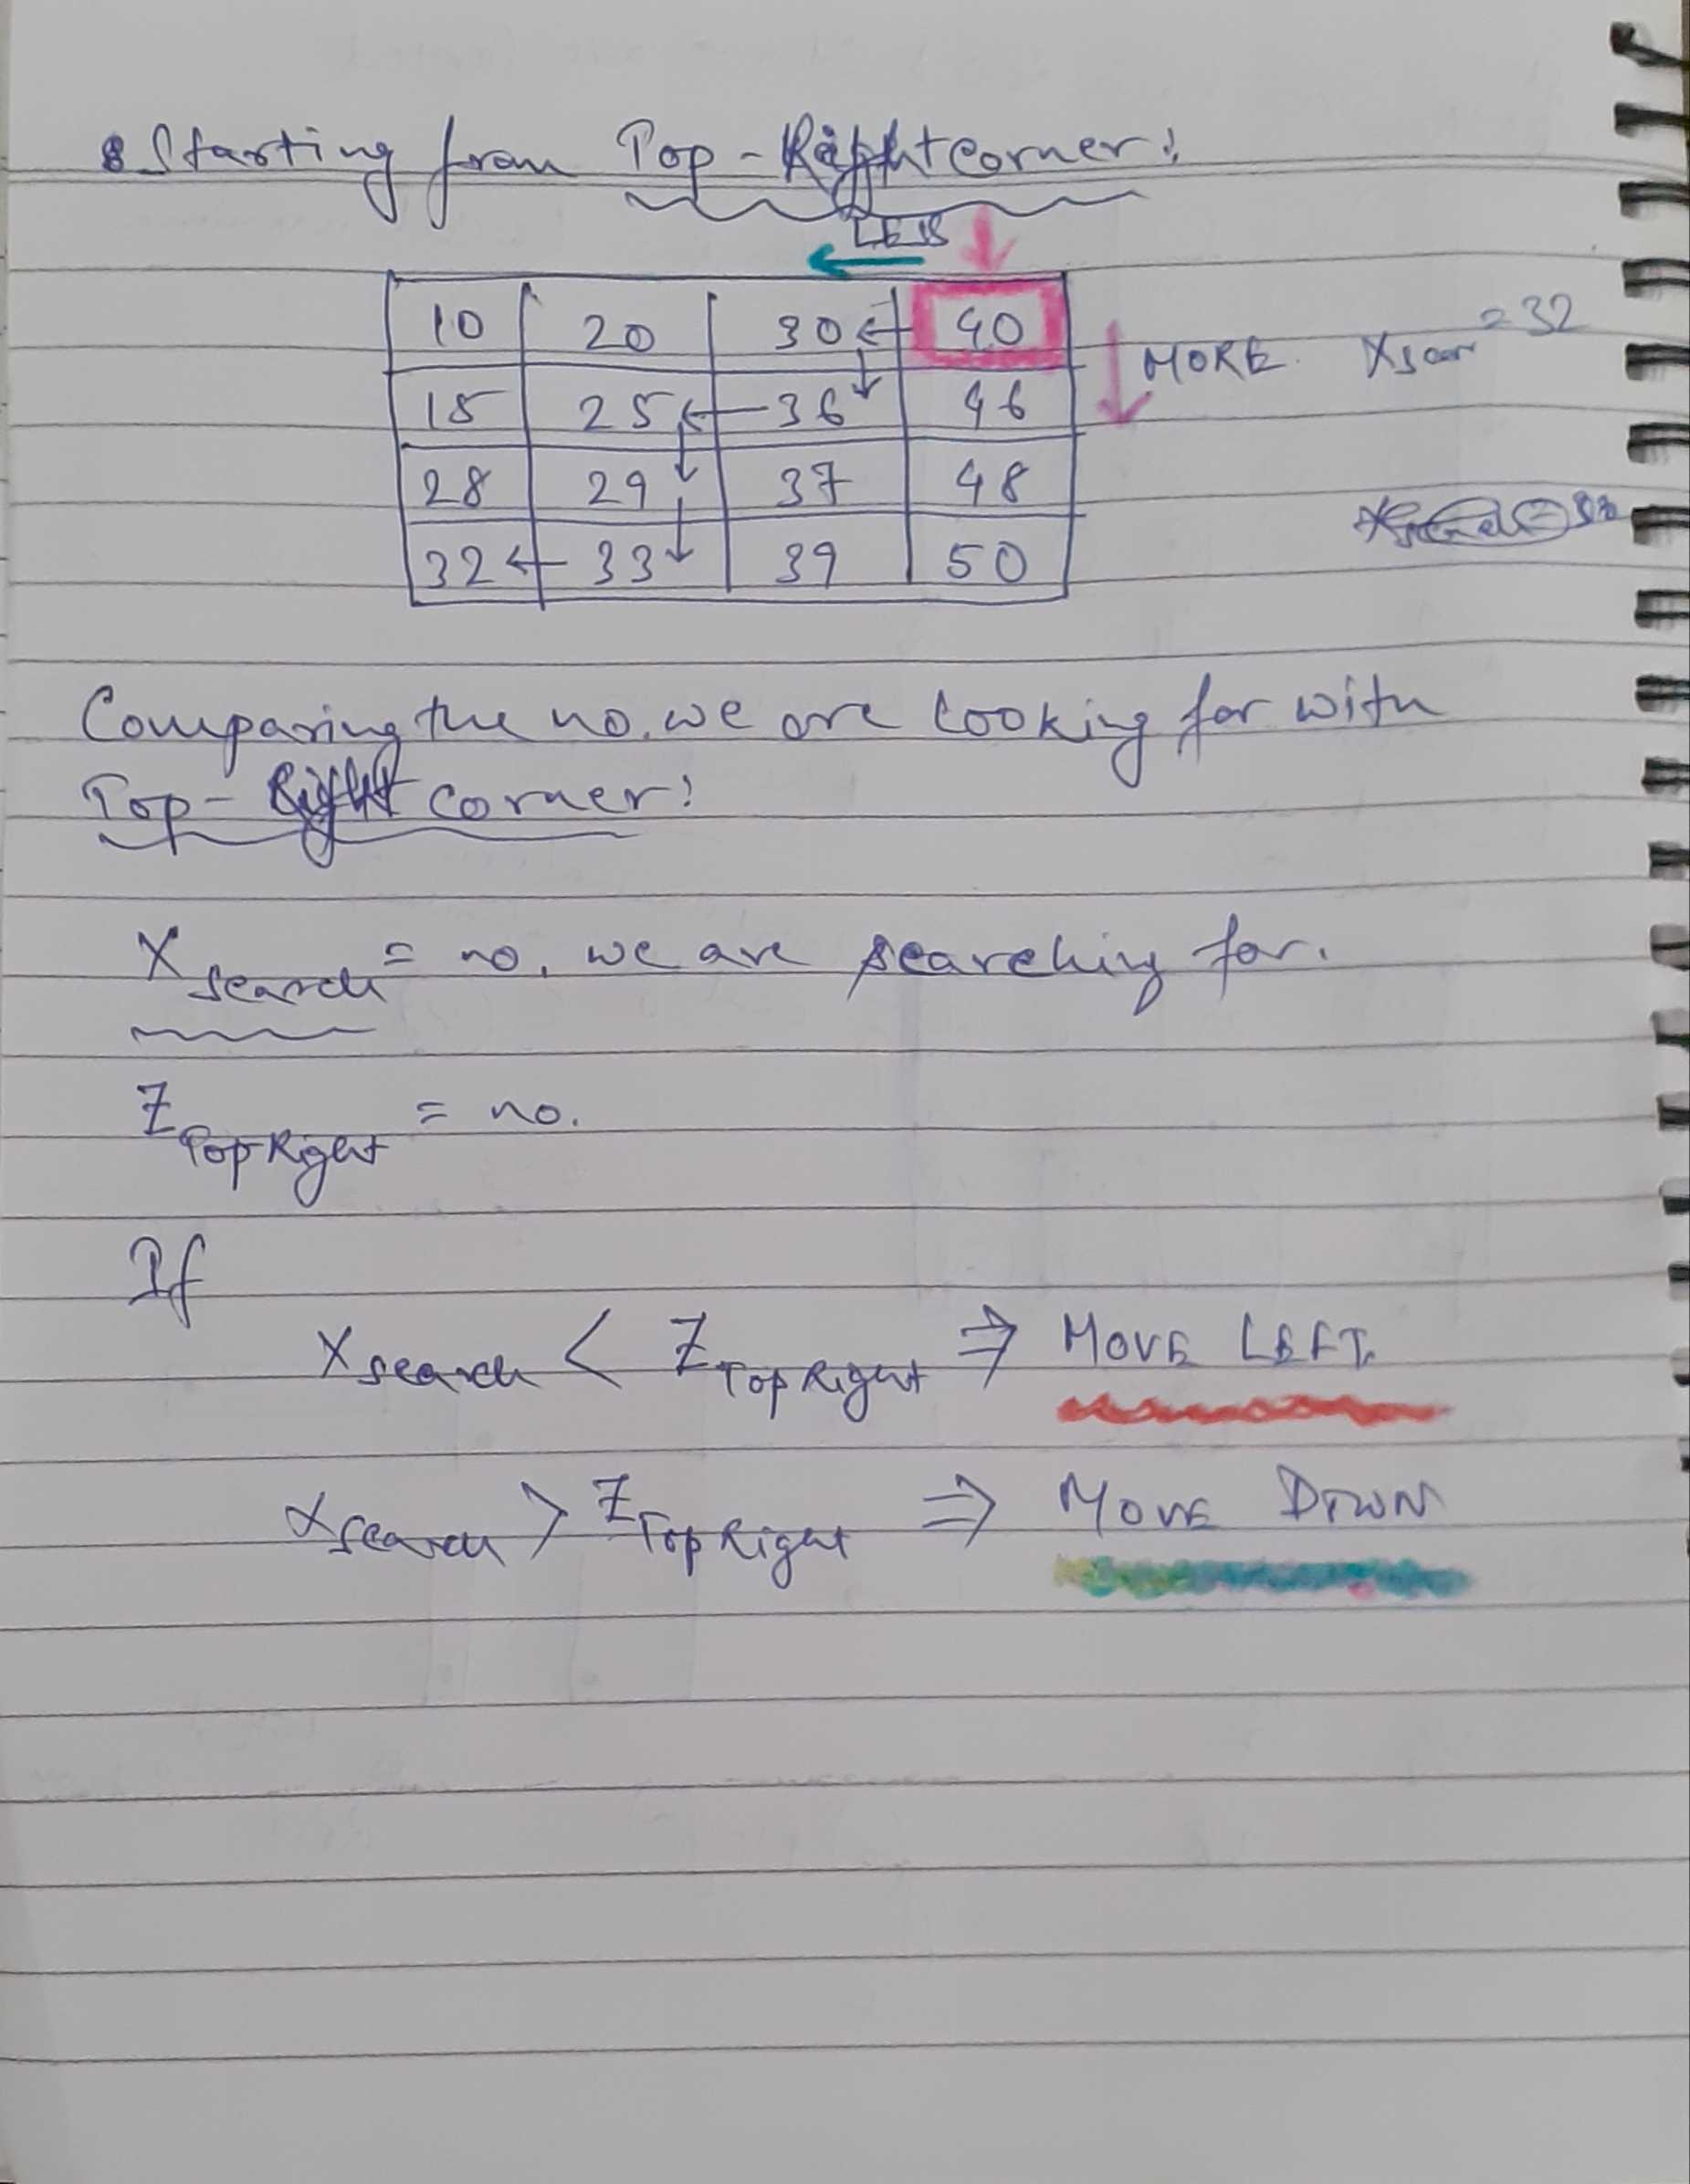 Starting from Top-Right corner:
LESS
10 20 30 ← 40
MORE Xsear = 32
15 25 ← 36 46
28 29 37 48
32 ← 33 39 50
Comparing the no. we are looking for with
Top-Right corner:
X search = no. we are searching for.
Z TopRight = no.
If
X search < Z TopRight ⇒ MOVE LEFT.
X search > Z TopRight ⇒ MOVE DOWN